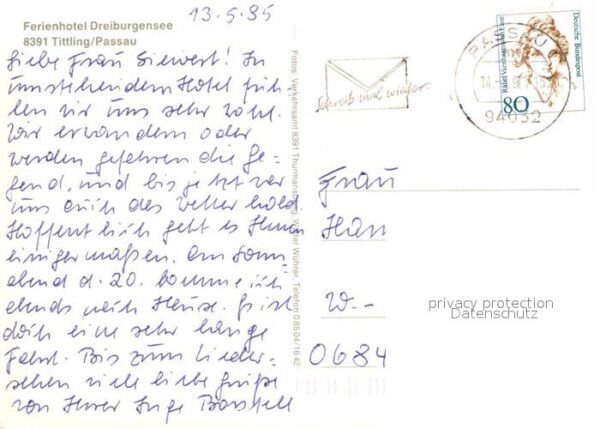 13.5.95
Ferienhotel Dreiburgensee
8391 Tittling/Passau
Liebe Frau Siewert! In
umstehendem Hotel füh-
len wir uns sehr wohl.
Wir erwandern oder
werden gefahren die Ge-
gend, und bis jetzt war
uns auch das Wetter hold.
Hoffentlich geht es Ihnen
einigermaßen. Am Sonn-
abend d. 20. komme ich
abends nach Hause. Es ist
doch eine sehr lange
Fahrt. Bis zum Wieder-
sehen viele liebe Grüße
von Ihrer Inge
Fotos: Verkehrsamt 8391 Thurmansbang, Walter Wührer, Telefon 0 85 04/16 42
Schreib mal wieder.
PASSAU
94032
Deutsche Bundespost
80
Frau
Han
W.-
0684
privacy protection
Datenschutz